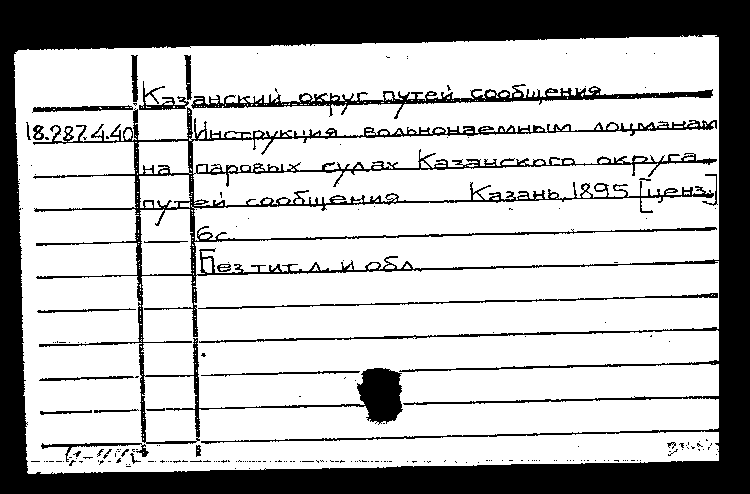 Казанский округ путей сообщения
18.287.4.40 Инструкция вольнонаемным лоцманам
на паровых судах Казанского округа
путей сообщения Казань, 1895 [ценз.]
6с.
Без тит. л. и обл.